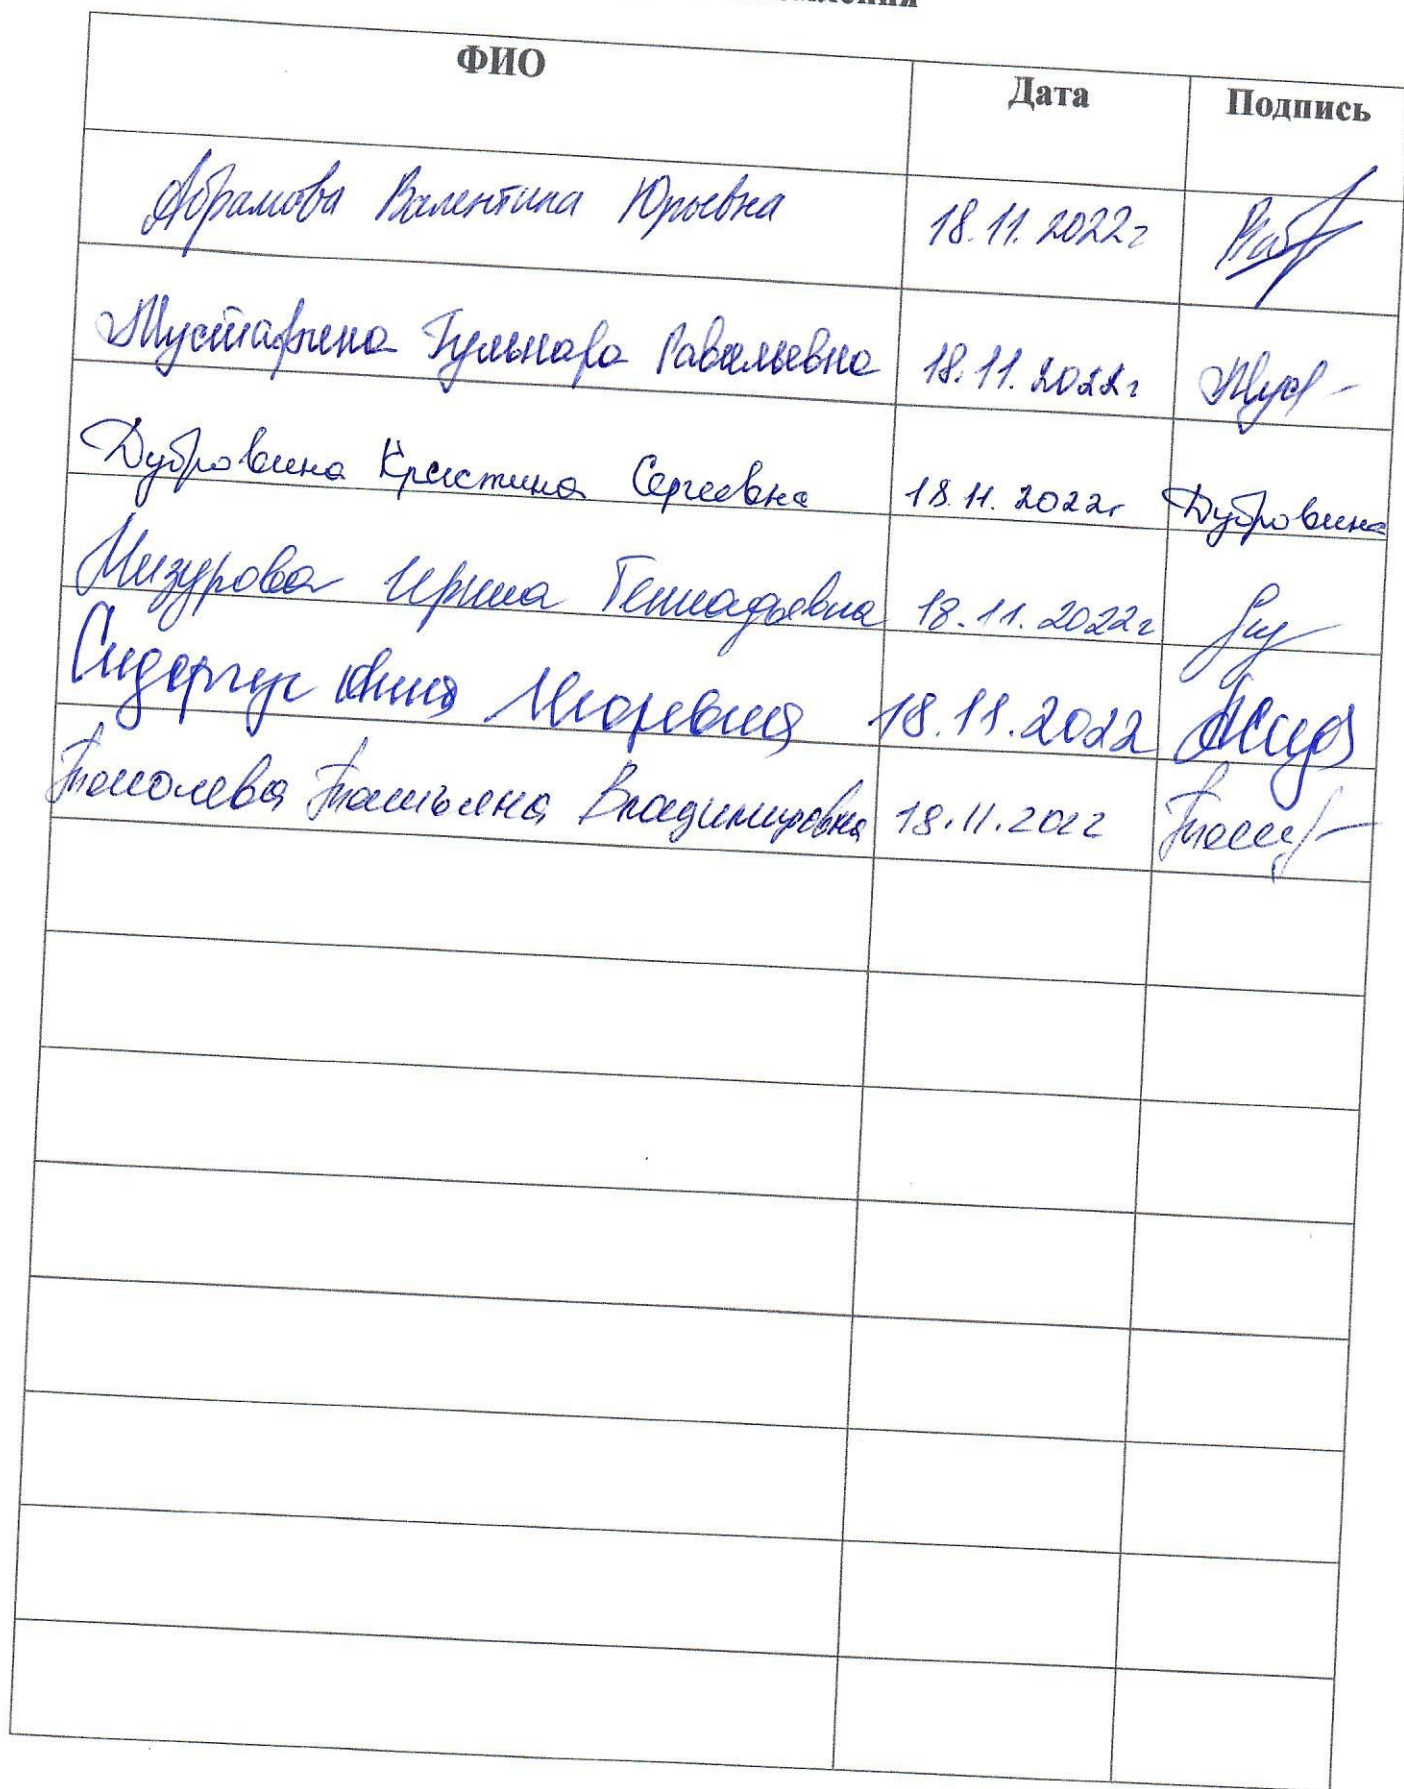 ФИО Дата Подпись
Абрамова Валентина Юрьевна 18.11.2022г
Мустафина Гульнара Равильевна 18.11.2022г Мус
Дубровина Кристина Сергеевна 18.11.2022г Дубровина
Мизурова Ирина Геннадьевна 18.11.2022г
Сидоргус Анна Игоревна 18.11.2022
Татьяна Владимировна 18.11.2022